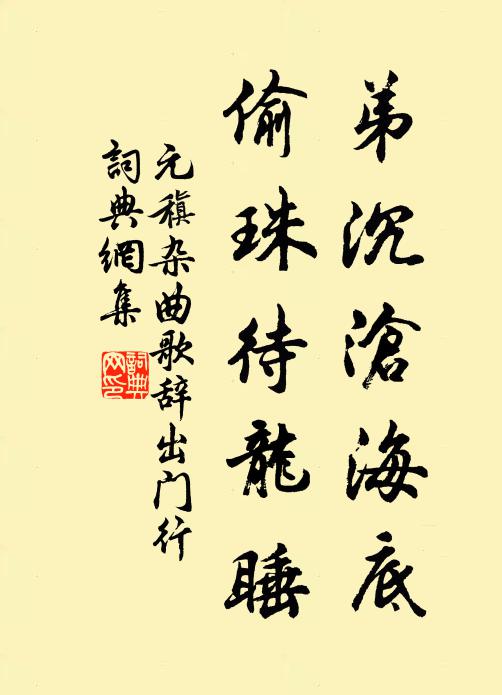 弟沉滄海底
偷珠待龍睡
元稹杂曲歌辞出门行
詞典網集
詞典
网印